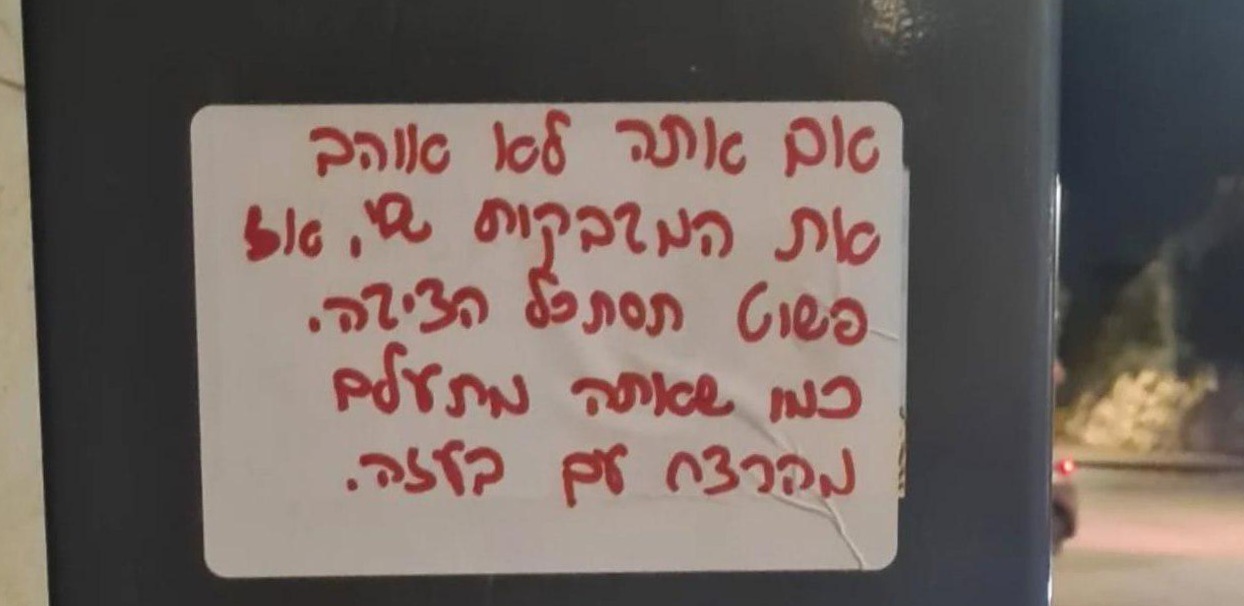 אם אתה לא אוהב
את המדבקות שלי, אז
פשוט תסתכל הצידה.
כמו שאתה מתעלם
מהרצח עם בעזה.